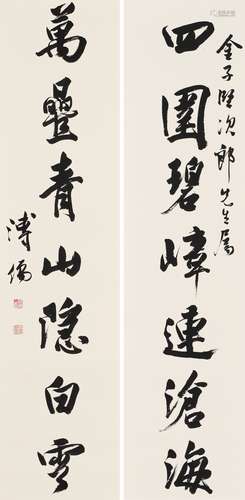 金子堅次郎先生属
四圍碧嶂連滄海
萬疊青山隱白雲
溥儒